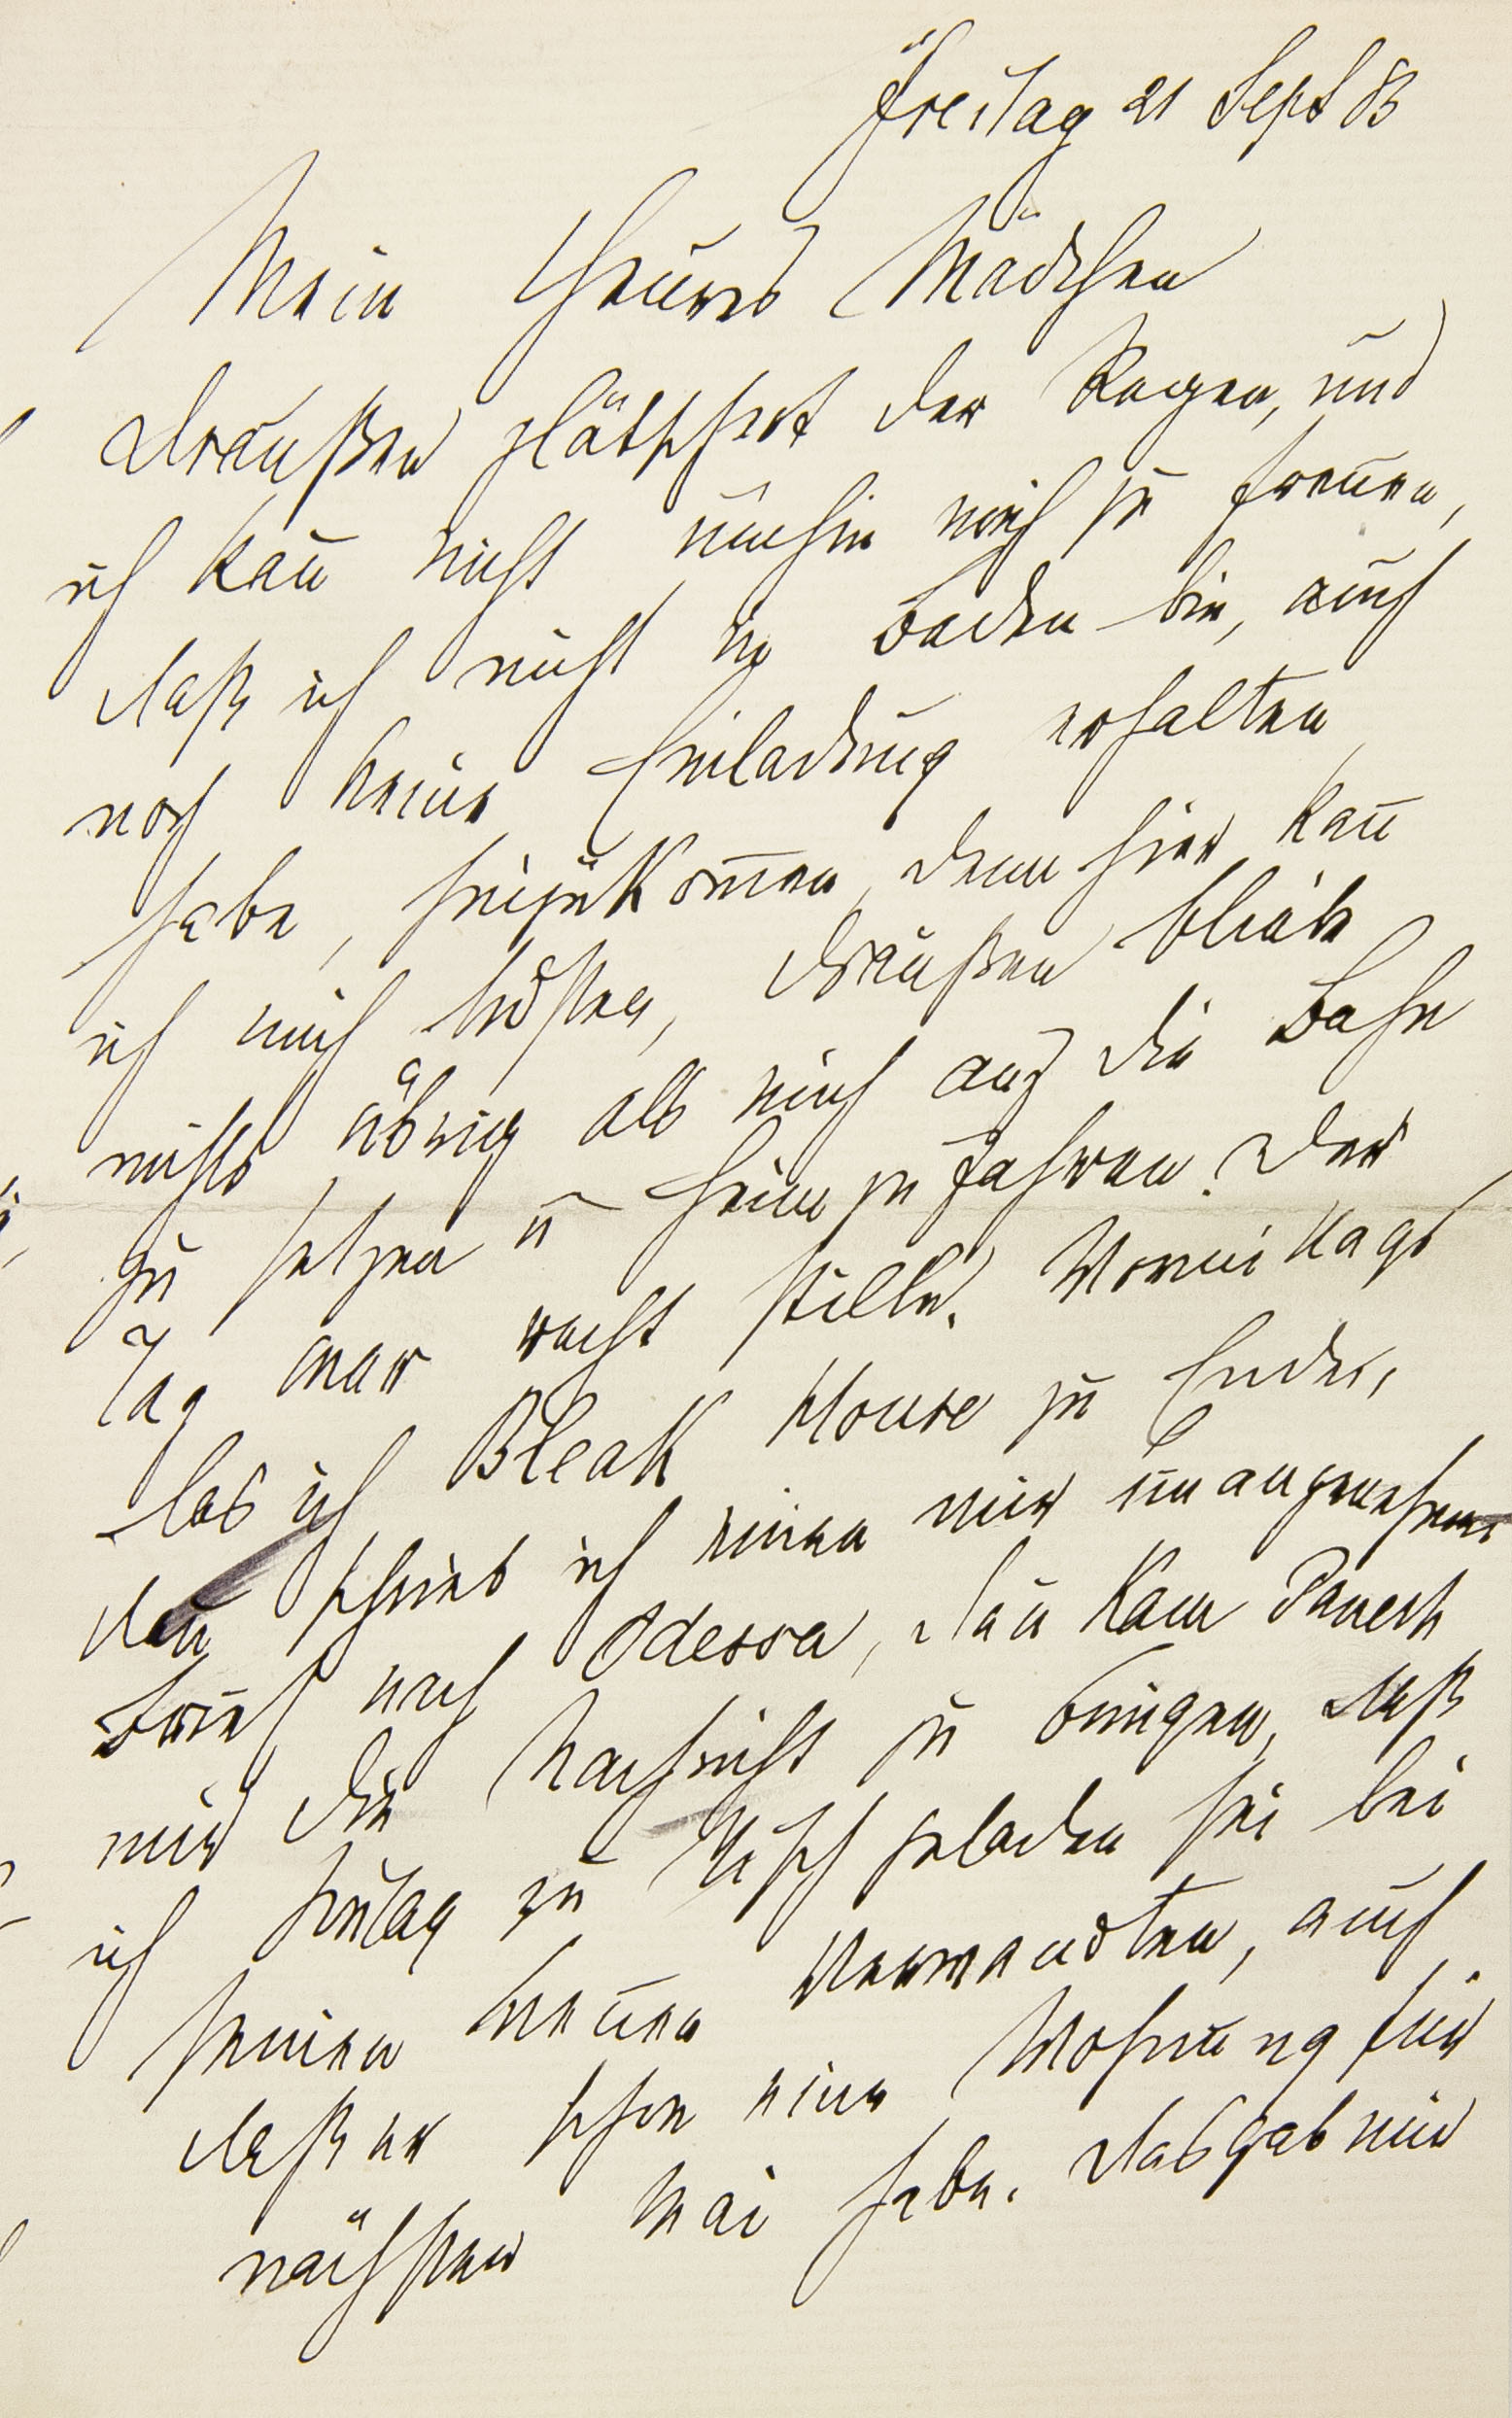 Freitag 21 Sept 83
Mein theures Mädchen
Draußen plätschert der Regen, und
ich kañ nicht umhin mich zu freuen,
daß ich nicht in Baden bin, auch
noch keine Einladung erhalten
habe, hinzukom̅en, denn hier kañ
ich mich trösten, draußen bliebe
nichts übrig als mich auf die Bahn
zu setzen u heim zu fahren. Der
Tag war recht stille. Vormittags
las ich Bleak House zu Ende,
dañ schrieb ich einen mir unangenehmen
Brief nach Odessa, dañ kam Paneth
mir die Nachricht zu bringen, daß
ich Sontag zu Tisch geladen sei bei
seinen neuen Verwandten, auch
daß er schon eine Wohnung für
nächsten Mai habe. Das gab mir